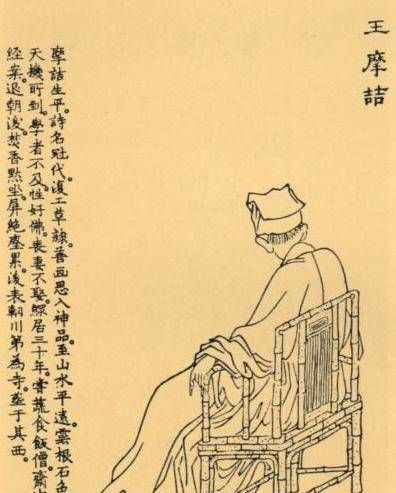 王摩詰
摩詰生平詩名冠代復工草隸善画思入神品至山水平遠雲根石色
天機所到學者不及性好佛喪妻不娶鰥居三十年嘗蔬食飯僧齋中
经案退朝後焚香默坐屏絶塵累後表輞川第為寺塟于其西